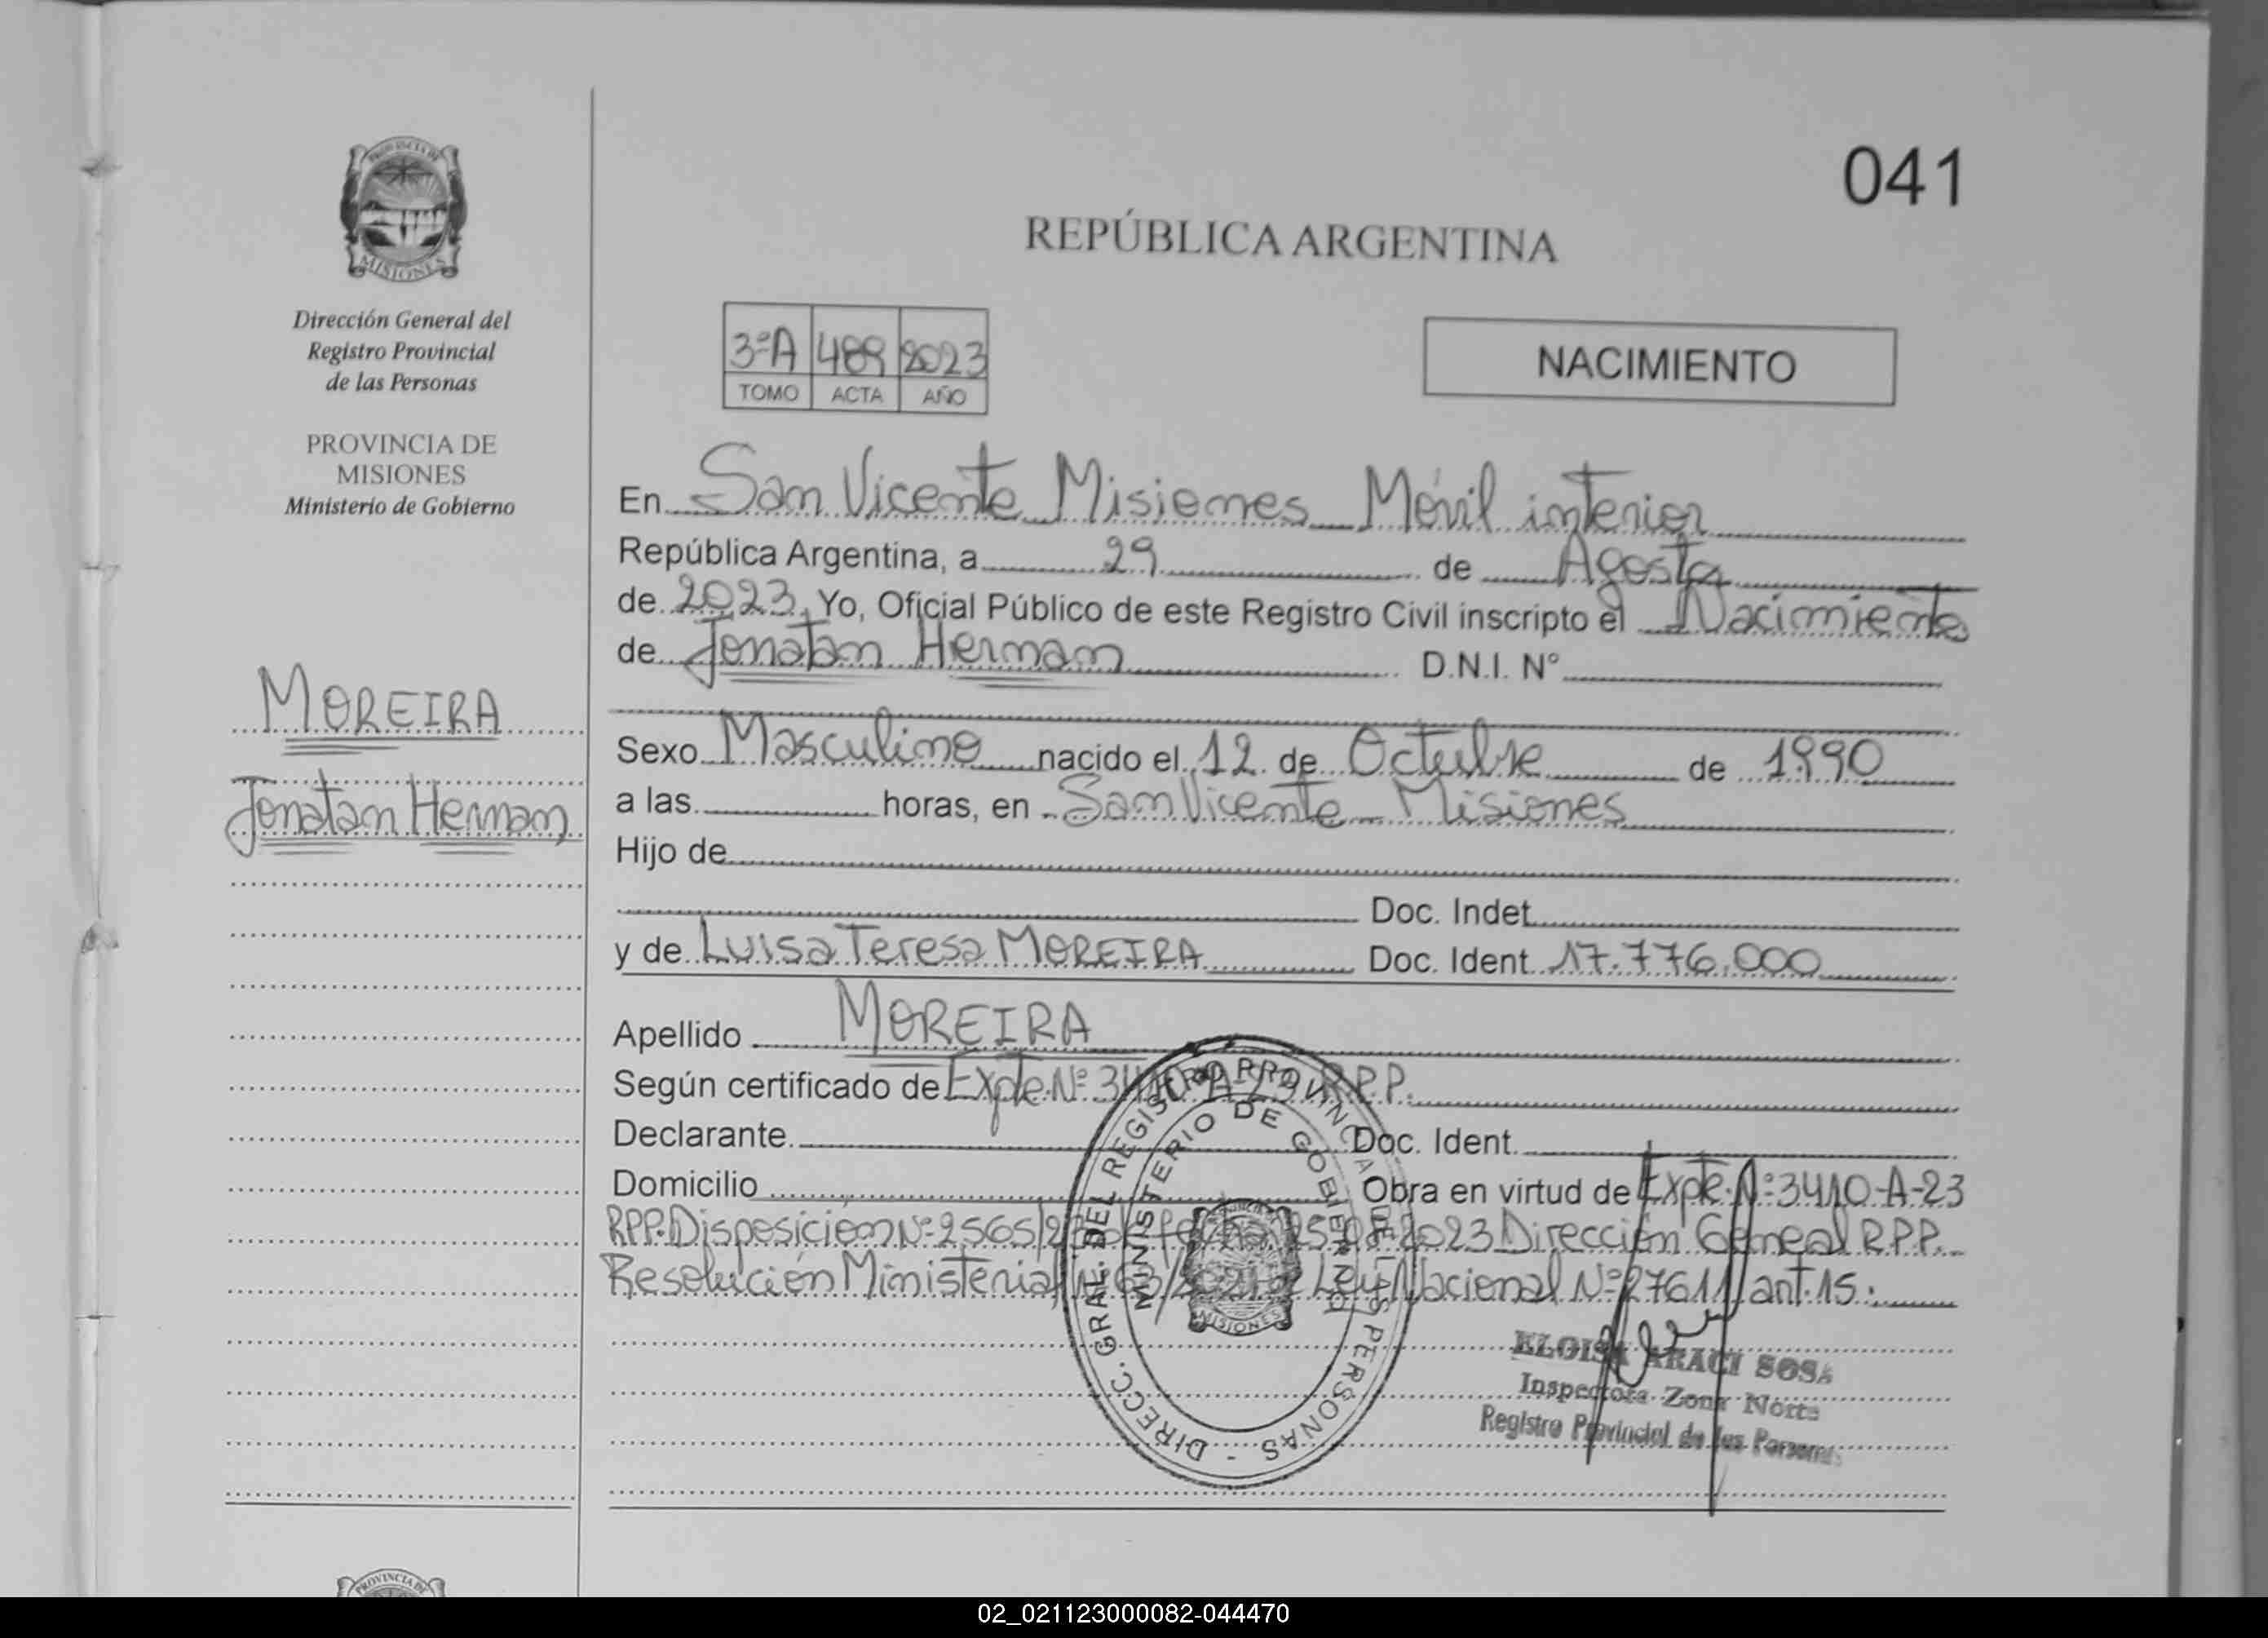 041
REPÚBLICA ARGENTINA
PROVINCIA DE
MISIONES
Dirección General del
Registro Provincial
de las Personas
PROVINCIA DE
MISIONES
Ministerio de Gobierno
3ºA 489 2023
TOMO ACTA AÑO
NACIMIENTO
En San Vicente Misiones Móvil interior
República Argentina, a 29 de Agosto
de 2023. Yo, Oficial Público de este Registro Civil inscripto el Nacimiento
de Jonatan Hernan D.N.I. Nº
MOREIRA
Jonatan Hernan
Sexo Masculino nacido el 12 de Octubre de 1990
a las horas, en San Vicente Misiones
Hijo de
Doc. Indet.
y de Luisa Teresa MOREIRA Doc. Ident. 17.776.000
Apellido MOREIRA
Según certificado de Expte Nº 3410-A-23 R.P.P.
Declarante Doc. Ident.
Domicilio Obra en virtud de Expte. Nº 3410-A-23
RPP. Disposición Nº 2565/23 de fecha 25 2023 Dirección General R.P.P.
Resolución Ministerial Nº 63/ Ley Nacional Nº 27611 art. 15.
DIRECC. GRAL. DEL REGISTRO PROVINCIAL DE LAS PERSONAS -
MINISTERIO DE GOBIERNO
MISIONES
ELOISA ARACI SOSA
Inspectora Zona Norte
Registro Provincial de las Personas
PROVINCIA DE
02_021123000082-044470